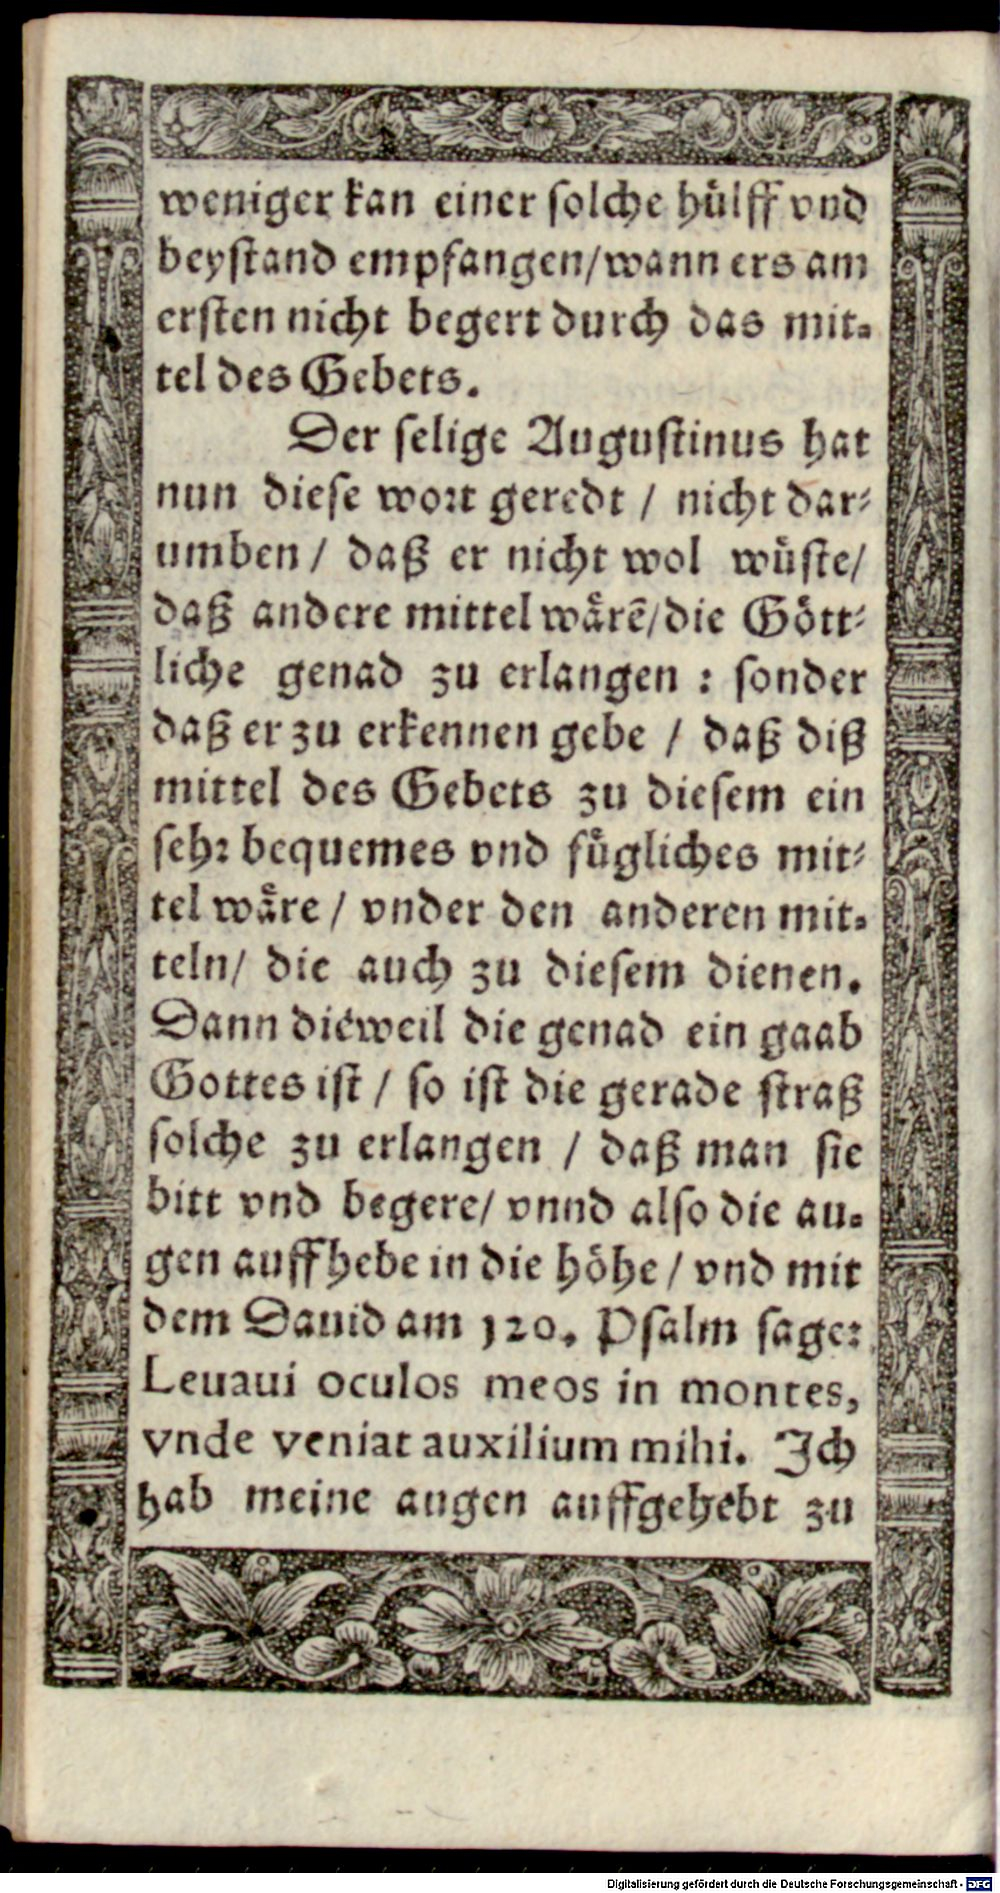 weniger kan einer solche huͤlff vnd
beystand empfangen/wann ers am
ersten nicht begert durch das mit-
tel des Gebets.
Der selige Augustinus hat
nun diese wort geredt / nicht dar-
umben / daß er nicht wol wuͤste/
daß andere mittel waͤrẽ/die Goͤtt-
liche genad zu erlangen : sonder
daß er zu erkennen gebe / daß diß
mittel des Gebets zu diesem ein
sehr bequemes vnd fuͤgliches mit-
tel waͤre / vnder den anderen mit-
teln/ die auch zu diesem dienen.
Dann dieweil die genad ein gaab
Gottes ist / so ist die gerade straß
solche zu erlangen / daß man sie
bitt vnd begere/ vnnd also die au-
gen auffhebe in die hoͤhe / vnd mit
dem Dauid am 120. Psalm sage:
Leuaui oculos meos in montes,
vnde veniat auxilium mihi. Ich
hab meine augen auffgehebt zu
Digitalisierung gefördert durch die Deutsche Forschungsgemeinschaft - DFG